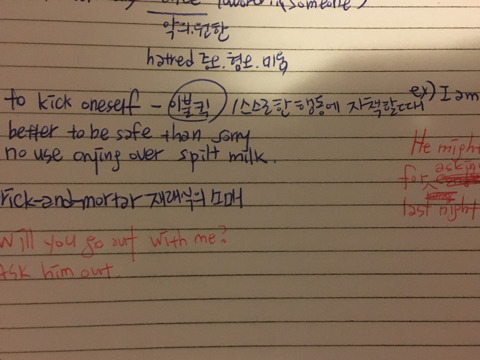 (someone)
악의. 원한
hatred 증오. 혐오. 미움
to kick oneself - 이불킥 (스스로한 행동에 자책할때 ex) I am
better to be safe than sorry
no use crying over spilt milk.
He might
for asking
last night
rick-and-mortar 재래식의 소매
Will you go out with me?
Ask him out